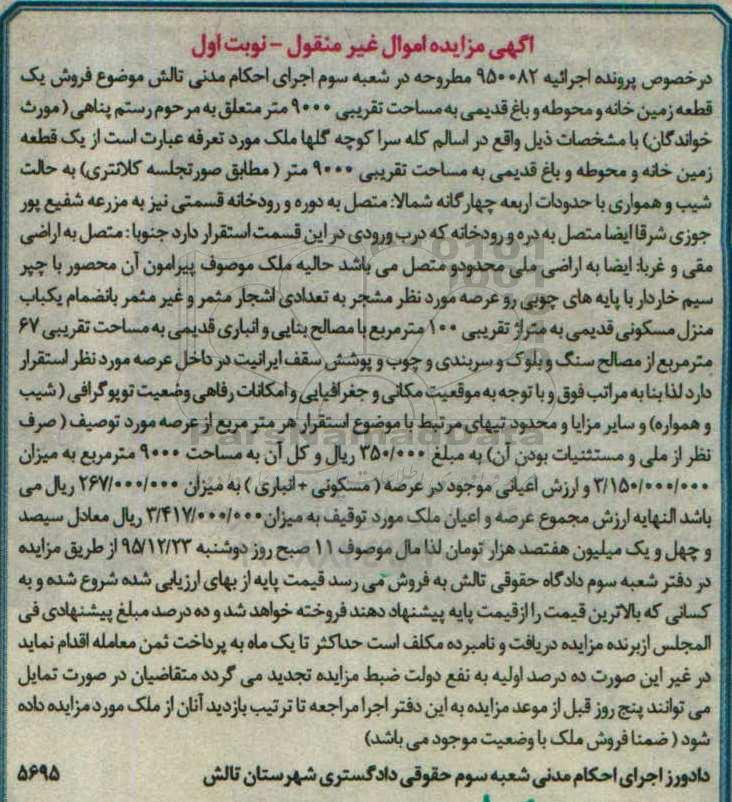 آگهی مزایده اموال غیر منقول - نوبت اول
درخصوص پرونده اجرائیه ۹۵۰۰۸۲ مطروحه در شعبه سوم اجرای احکام مدنی تالش موضوع فروش یک
قطعه زمین خانه و محوطه و باغ قدیمی به مساحت تقریبی ۹۰۰۰ متر متعلق به مرحوم رستم پناهی ( مورث
خواندگان) با مشخصات ذیل واقع در اسالم کله سرا کوچه گلها ملک مورد تعرفه عبارت است از یک قطعه
زمین خانه و محوطه و باغ قدیمی به مساحت تقریبی ۹۰۰۰ متر ( مطابق صورتجلسه کلانتری) به حالت
شیب و همواری با حدودات اربعه چهارگانه شمالا: متصل به دوره و رودخانه قسمتی نیز به مزرعه شفیع پور
جوزی شرقا ایضا متصل به دره و رودخانه که درب ورودی در این قسمت استقرار دارد جنوبا : متصل به اراضی
مقی و غربا: ایضا به اراضی ملی محدودو متصل می باشد حالیه ملک موصوف پیرامون آن محصور با چپر
سیم خاردار با پایه های چوبی رو عرصه مورد نظر مشجر به تعدادی اشجار مثمر و غیر مثمر بانضمام یکباب
منزل مسکونی قدیمی به متراژ تقریبی ۱۰۰ مترمربع با مصالح بنایی و انباری قدیمی به مساحت تقریبی ۶۷
مترمربع از مصالح سنگ و بلوک و سربندی و چوب و پوشش سقف ایرانیت در داخل عرصه مورد نظر استقرار
دارد لذا بنا به مراتب فوق و با توجه به موقعیت مکانی و جغرافیایی و امکانات رفاهی وضعیت توپوگرافی ( شیب
و همواره) و سایر مزایا و محدود تیهای مرتبط با موضوع استقرار هر متر مربع از عرصه مورد توصیف ( صرف
نظر از ملی و مستثنیات بودن آن) به مبلغ ۳۵۰/۰۰۰ ریال و کل آن به مساحت ۹۰۰۰ مترمربع به میزان
۳/۱۵۰/۰۰۰/۰۰۰ و ارزش اعیانی موجود در عرصه ( مسکونی + انباری ) به میزان ۲۶۷/۰۰۰/۰۰۰ ریال می
باشد النهایه ارزش مجموع عرصه و اعیان ملک مورد توقیف به میزان ۳/۴۱۷/۰۰۰/۰۰۰ ریال معادل سیصد
و چهل و یک میلیون هفتصد هزار تومان لذا مال موصوف ۱۱ صبح روز دوشنبه ۹۵/۱۲/۲۳ از طریق مزایده
در دفتر شعبه سوم دادگاه حقوقی تالش به فروش می رسد قیمت پایه از بهای ارزیابی شده شروع شده و به
کسانی که بالاترین قیمت را ازقیمت پایه پیشنهاد دهند فروخته خواهد شد و ده درصد مبلغ پیشنهادی فی
المجلس ازبرنده مزایده دریافت و نامبرده مکلف است حداکثر تا یک ماه به پرداخت ثمن معامله اقدام نماید
در غیر این صورت ده درصد اولیه به نفع دولت ضبط مزایده تجدید می گردد متقاضیان در صورت تمایل
می توانند پنج روز قبل از موعد مزایده به این دفتر اجرا مراجعه تا ترتیب بازدید آنان از ملک مورد مزایده داده
شود ( ضمنا فروش ملک با وضعیت موجود می باشد)
دادورز اجرای احکام مدنی شعبه سوم حقوقی دادگستری شهرستان تالش ۵۶۹۵
ParsNamadData